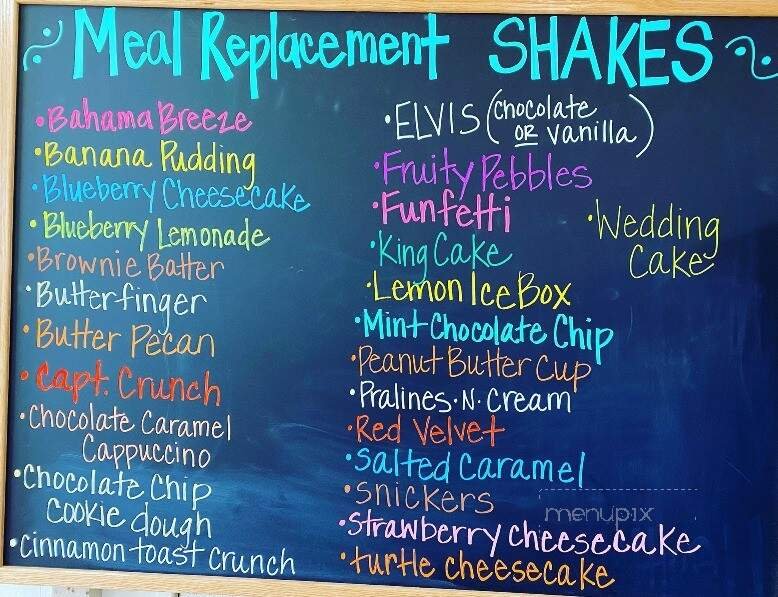 ~ Meal Replacement SHAKES ~
• Bahama Breeze
• Banana Pudding
• Blueberry Cheesecake
• Blueberry Lemonade
• Brownie Batter
• Butterfinger
• Butter Pecan
• Capt. Crunch
• Chocolate Caramel
Cappuccino
• Chocolate Chip
Cookie dough
• Cinnamon toast crunch
• ELVIS (chocolate
OR vanilla)
• Fruity Pebbles
• Funfetti
• King Cake
• Lemon Ice Box
• Mint Chocolate Chip
• Peanut Butter Cup
• Pralines • N • Cream
• Red Velvet
• Salted Caramel
• Snickers
• Strawberry cheesecake
• turtle cheesecake
• Wedding
Cake
menupix